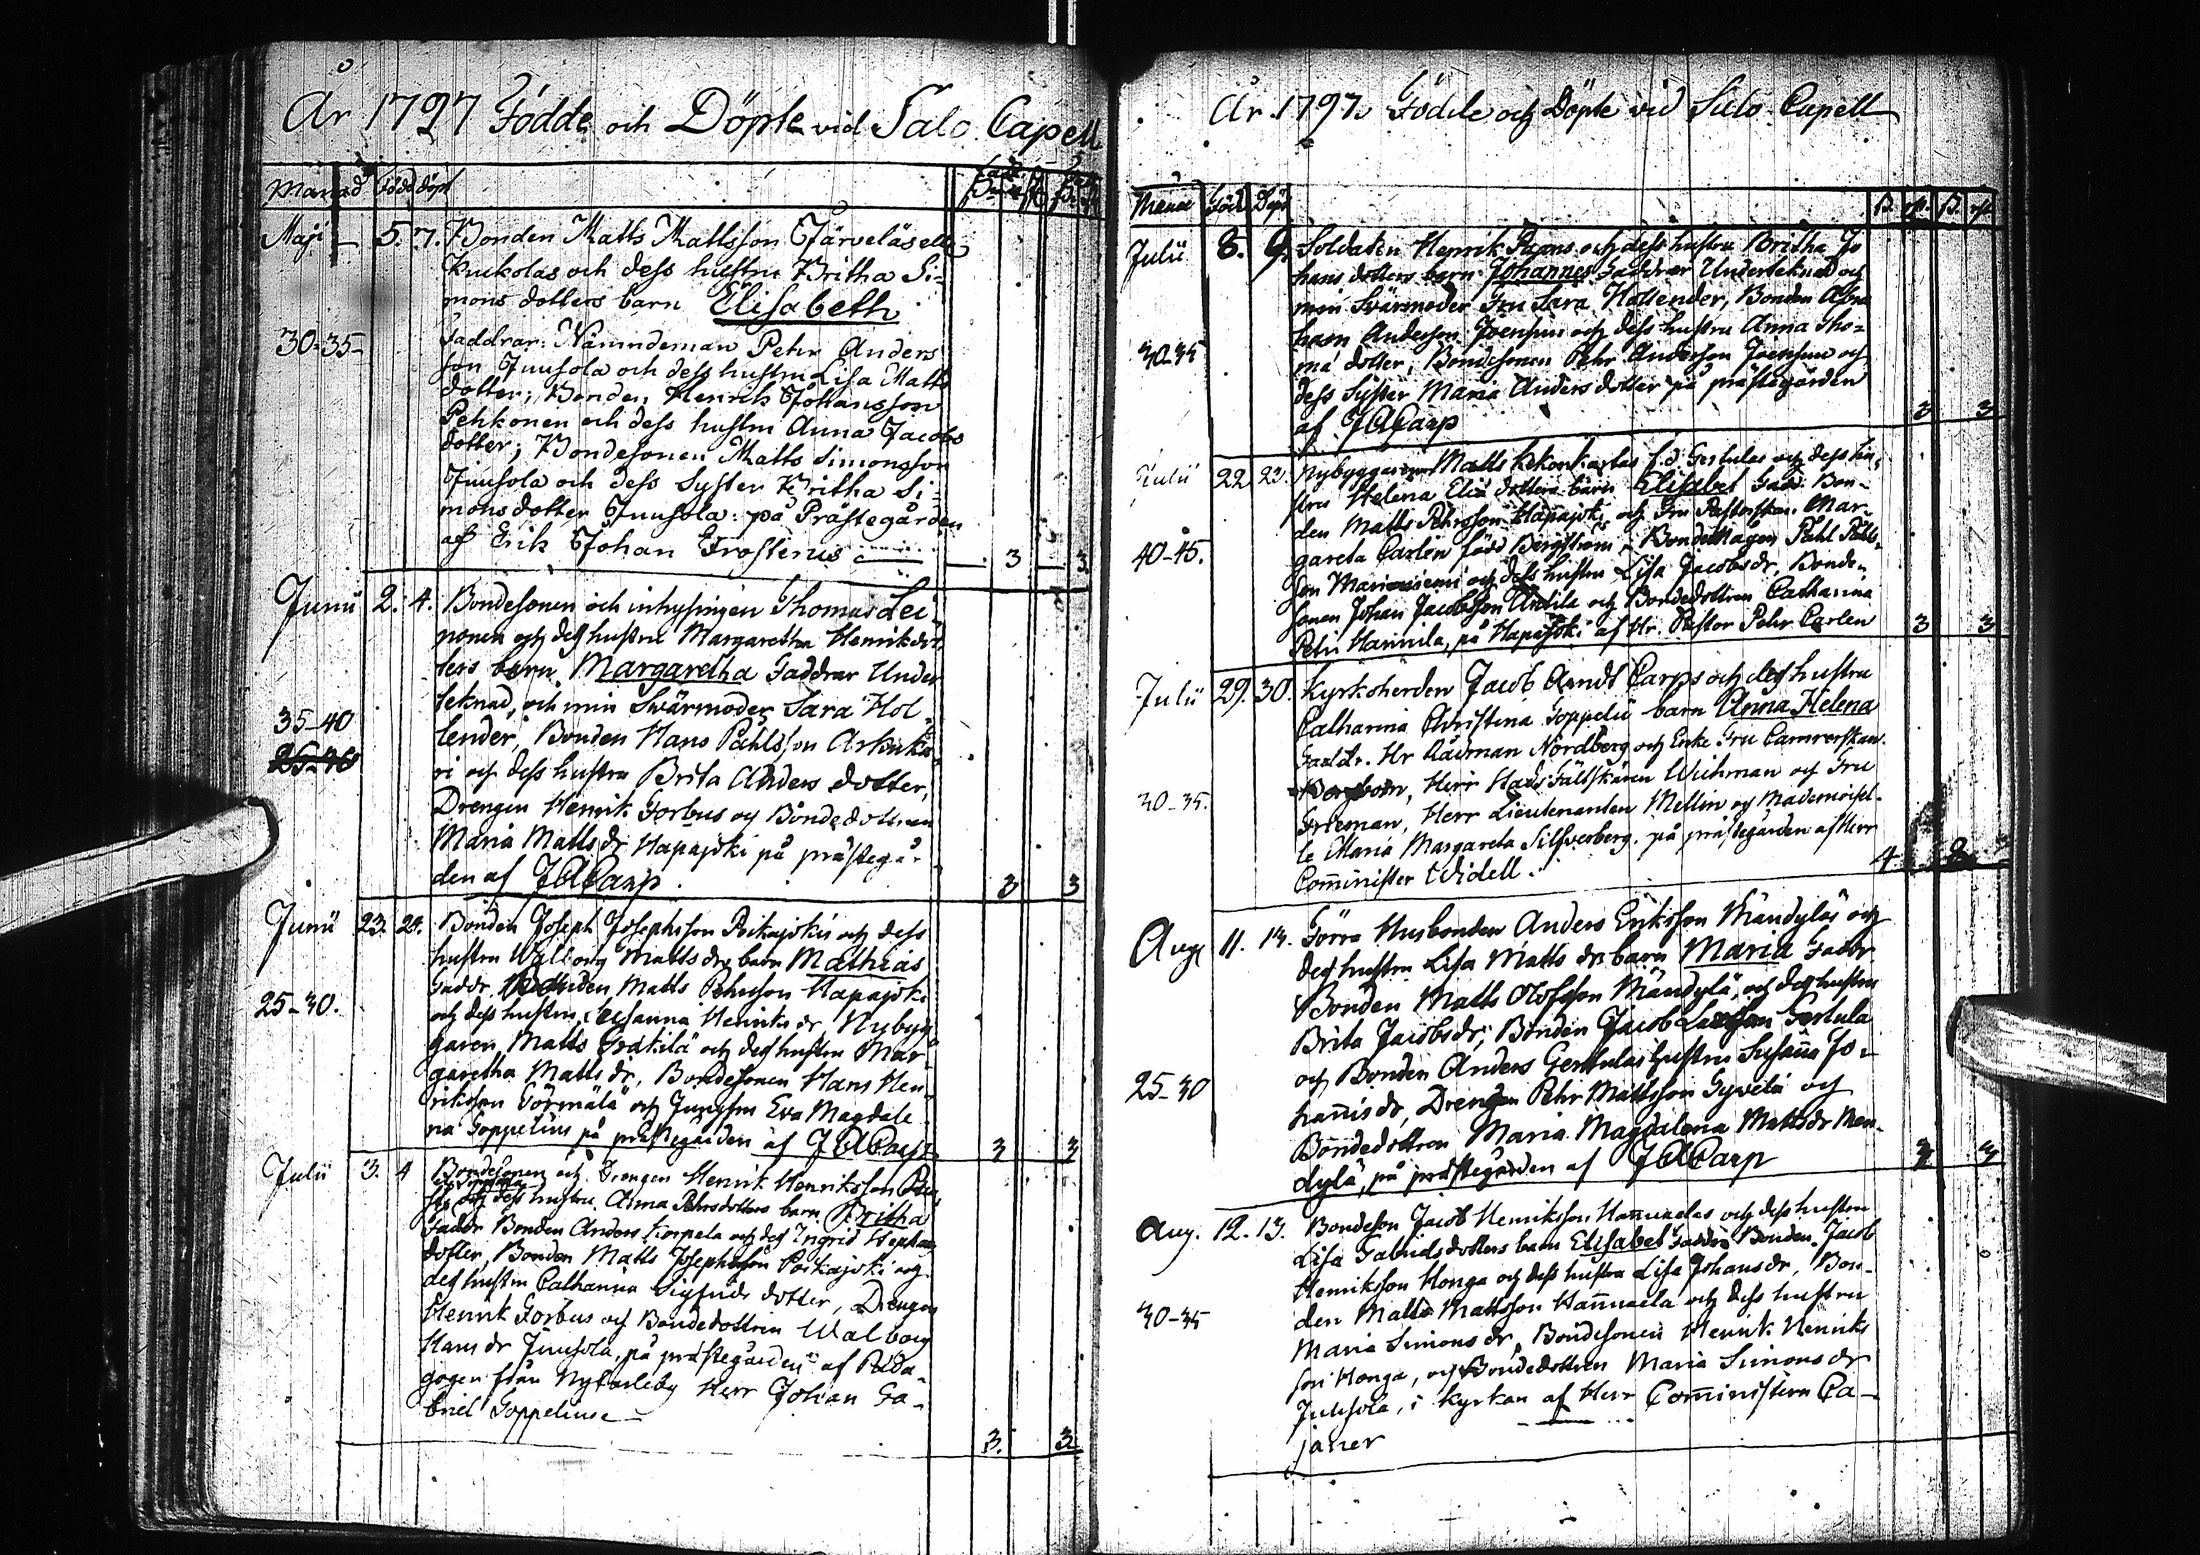 År 1797 Födde och Döpte vid Salo Capell
Månad Född döpt
Maji 5. 7. Bonden Matts Mattsson Järveläs eller
Kuckolas och dess hustru Britha Si-
mons dotters barn Elisabeth
30-35 Faddrar: Nämndeman Pehr Anders
son Juusola och dess hustru Lisa Matts
dotter; Bonden Henrik Johansson
Pehkonen och dess hustru Anna Jacobs
dotter; Bondesonen Matts Simonsson
Juusola och dess Syster Britha Si-
monsdotter Juusola: på Prästegården
af Erik Johan Frosterus 3 3.
Junii 2. 4. Bondesonen och inhysingen Thomas Lei-
nonen och dess hustru Margaretha Henriksdot
ters barn Margaretha Faddrar Under
teknad, och min Svärmoder Sara Hol-
35-40 lender, Bonden Hans Påhlsson
25-40 ri och dess hustru Brita Anders dotter,
Drengen Henrik Forbus och Bondedottren
Maria Matts dr Hapajoki på prästegå-
den af JACarp. 3 3
Junii 23. 24. Bonden Joseph Josephsson Poikajokis och dess
hustru Walborg Matts drs barn Mathias
Faddr. Bonden Matts Pehrsson Hapajoki
25-30. och dess hustru Susanna Henriks dr, Nybyg
garen Matts och dess hustru Mar-
garetha Matts dr, Bondesonen Hans Hen-
riksson Törmälä och Jungfru Eva Magdale
na Toppelius på prästegården af JACarp 3 3
Julii 3. 4 Bondesonen och Drengen Henrik Henriksson
och dess hustru Anna Pehrsdotters barn Britha
Faddr Bonden Anders Korpela och dess Ingrid Stephans
dotter, Bonden Matts Josephsson Poikajoki och
dess hustru Catharina Sigfrids dotter, Drengen
Henrik Forbus och Bondedottren Walborg
Hans dr Juusola, på prästegården af Päda-
gogen från Nykarleby Herr Johan Ga-
briel Toppelius 3. 3
År 1797. Födde och Döpte vid Salo Capell
Månad Född Döpt B. qp. B. qp.
Julii 8. 9. Soldaten Henrik Paans och dess hustru Britha Jo
hans dotters barn Johannes Faddrar Underteknad och
min Svärmoder Fru Sara Hollender, Bonden Abra
ham Andersson Joensuu och dess hustru Anna Tho-
30-35 mæ dotter, Bondesonen Pehr Andersson Joensuu och
dess Syster Maria Anders dotter på prästegården
af JACarp 3 3
Julii 22. 23. Nybyggaren Matts f.d. Gertulas och dess hu-
stru Helena Eliæ dotters barn Elisabet Fadd: Bon-
den Matts Pehrsson Hapajoki och Fru Pastorskan Mar-
40-45. gareta Carlen född Bergström, Påhl Påhls-
son Marianiemi och dess hustru Lisa Jacobsdr, Bonde-
sonen Johan Jacobsson Antila och Bondedottren Catharina
Petri Hannila, på Hapajoki af Hr. Pastor Pehr Carlen 3 3
Julii 29. 30. Kyrkoherden Jacob Arndt Carps och dess hustru
Catharina Christina Toppelii barn Anna Helena
Faddr. Hr Rådman Nordberg och Enke Fru Camrerskan
Herr Stads Fältskären Wichman och Fru
30-35. Frieman, Herr Lieutenanten Mellin och Mademoisel-
le Maria Margareta Silfverberg. på prästegården af Herr
Comminister Widell. 4
Aug 11. 13. Förra Husbonden Anders Eriksson Mändyläs och
dess hustru Lisa Matts drs barn Maria Faddr
Bonden Matts Olofsson Mändylä, och dess hustru
Brita Jacobsdr; Bonden Jacob Larsson Gertula
och Bonden Anders Gertulas hustru Susanna Jo-
25-30 hannis dr, Drengen Pehr Mattsson Syvelä och
Bondedottren Maria Magdalena Mattsdr Män-
dylä, på prästegården af JACarp 3 3
Aug. 12. 13. Bondeson Jacob Henriksson Hannuelas och dess hustru
Lisa Gabriels dotters barn Elisabet Faddr: Bonden Jacob
Henriksson Honga och dess hustru Lisa Johans dr, Bon-
den Matts Mattsson Hannuela och dess hustru
30-35 Maria Simons dr, Bondesonen Henrik Henriks
son Honga, och Bondedottren Maria Simons dr
Juusola, i kyrkan af Herr Comministern Ca-
janer